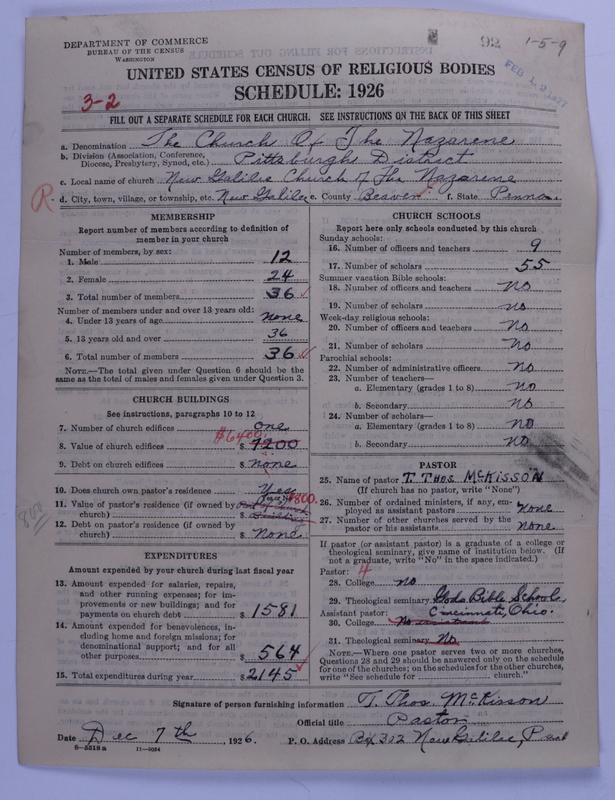 DEPARTMENT OF COMMERCE
BUREAU OF THE CENSUS
WASHINGTON
92
1-5-9
FEB 1
UNITED STATES CENSUS OF RELIGIOUS BODIES
SCHEDULE: 1926
3-2
FILL OUT A SEPARATE SCHEDULE FOR EACH CHURCH. SEE INSTRUCTIONS ON THE BACK OF THIS SHEET
a. Denomination The Church Of The Nazarene
b. Division (Association, Conference, Diocese, Presbytery, Synod, etc.) Pittsburgh District
c. Local name of church New Galilee Church of the Nazarene
R
d. City, town, village, or township, etc. New Galilee e. County Beaver f. State Penna.
MEMBERSHIP
Report number of members according to definition of
member in your church
Number of members, by sex:
1. Male 12
2. Female 24
3. Total number of members 36
Number of members under and over 13 years old:
4. Under 13 years of age none
5. 13 years old and over 36
6. Total number of members 36
NOTE.—The total given under Question 6 should be the
same as the total of males and females given under Question 3.
CHURCH BUILDINGS
See instructions, paragraphs 10 to 12
7. Number of church edifices one
$6400
8. Value of church edifices $ 7200
9. Debt on church edifices $ none
10. Does church own pastor's residence Yes
11. Value of pastor's residence (if owned by
church) $ $800.
800
12. Debt on pastor's residence (if owned by
church) $ None
EXPENDITURES
Amount expended by your church during last fiscal year
13. Amount expended for salaries, repairs,
and other running expenses; for im-
provements or new buildings; and for
payments on church debt $ 1581
14. Amount expended for benevolences, in-
cluding home and foreign missions; for
denominational support; and for all
other purposes $ 564
15. Total expenditures during year $ 2145
CHURCH SCHOOLS
Report here only schools conducted by this church
Sunday schools:
16. Number of officers and teachers 9
17. Number of scholars 55
Summer vacation Bible schools:
18. Number of officers and teachers no
19. Number of scholars no
Week-day religious schools:
20. Number of officers and teachers no
21. Number of scholars no
Parochial schools:
22. Number of administrative officers no
23. Number of teachers—
a. Elementary (grades 1 to 8) no
b. Secondary no
24. Number of scholars—
a. Elementary (grades 1 to 8) no
b. Secondary no
PASTOR
25. Name of pastor T. Thos. McKisson
(If church has no pastor, write "None")
26. Number of ordained ministers, if any, em-
ployed as assistant pastors none
27. Number of other churches served by the
pastor or his assistants none
If pastor (or assistant pastor) is a graduate of a college or
theological seminary, give name of institution below. (If
not a graduate, write "No" in the space indicated.)
Pastor: 4
28. College no
29. Theological seminary Gods Bible School
Assistant pastor: Cincinnati, Ohio.
30. College No assistant
31. Theological seminary No
NOTE.—Where one pastor serves two or more churches,
Questions 28 and 29 should be answered only on the schedule
for one of the churches; on the schedules for the other churches,
write "See schedule for church."
Signature of person furnishing information T. Thos. McKisson
Official title Pastor
Date Dec 7th, 1926. P. O. Address Box 302 New Galilee, Pa
8-5518a 11-9034